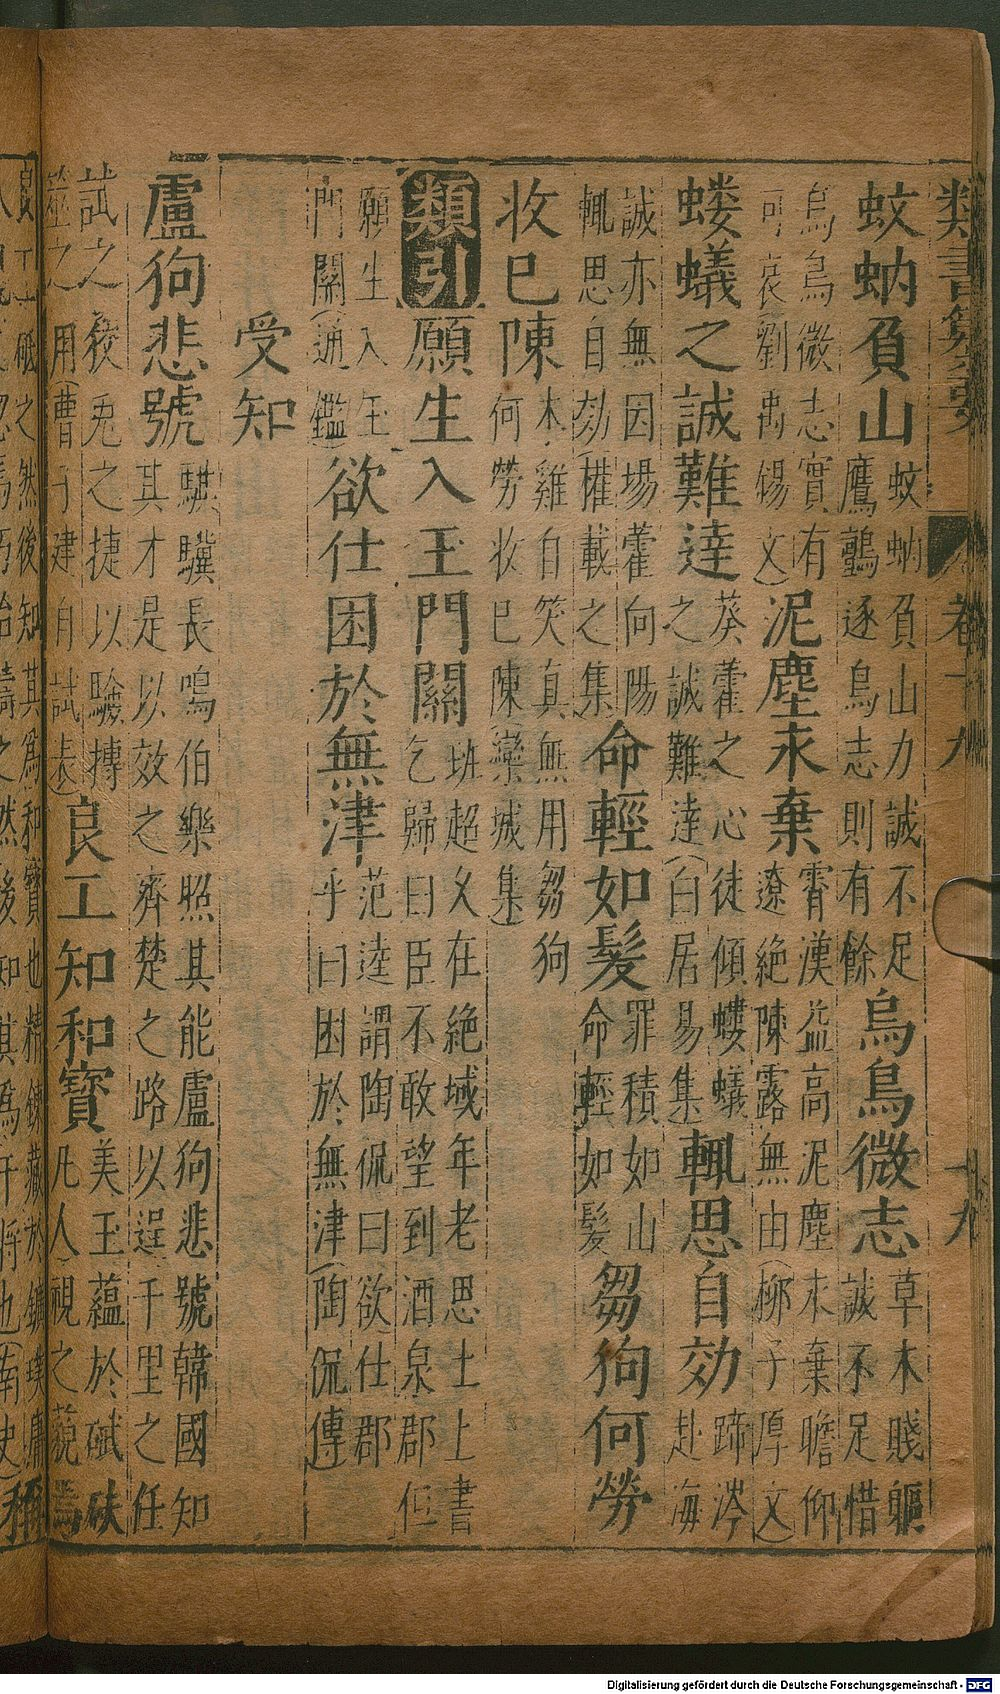 類書纂要　卷十九　十九
蚊蚋負山
蚊蚋負山力誠不足
鷹鸇逐鳥志則有餘
烏鳥微志
草木賤軀
誠不足惜
烏鳥微志實有
可哀(劉禹錫文)
泥塵未棄
霄漢益高泥塵未棄瞻仰
遼絶陳露無由(柳子厚文)
螻蟻之誠難達
葵藿之心徒傾螻蟻
之誠難達(白居易集)
輒思自効
蹄涔
赴海
誠亦無因場藿向陽
輒思自効(權載之集)
命輕如髮
罪積如山
命輕如髮
芻狗何勞
收已陳
木雞自笑真無用芻狗
何勞收已陳(欒城集)
類引
願生入玉門關
班超久在絶域年老思土上書
乞歸曰臣不敢望到酒泉郡但
願生入玉
門關(通鑑)
欲仕困於無津
范逵謂陶侃曰欲仕郡
乎曰困於無津(陶侃傳)
受知
盧狗悲號
騏驥長鳴伯樂照其能盧狗悲號韓國知
其才是以效之齊楚之路以逞千里之任
試之狡兔之捷以驗摶
噬之用(曹子建自試表)
良工知和寶
美玉蘊於碔砆
凡人(視之藐焉
良工砥之然後知其為和寶也精鍊藏於鑛璞庸
人忽焉巧冶鑄之然後知其為干將也(南史)
Digitalisierung gefördert durch die Deutsche Forschungsgemeinschaft - DFG